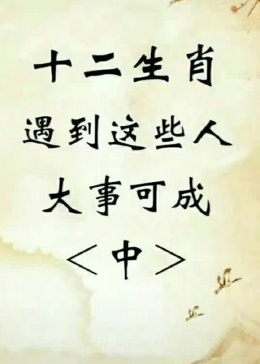 十二生肖
遇到这些人
大事可成
＜中＞